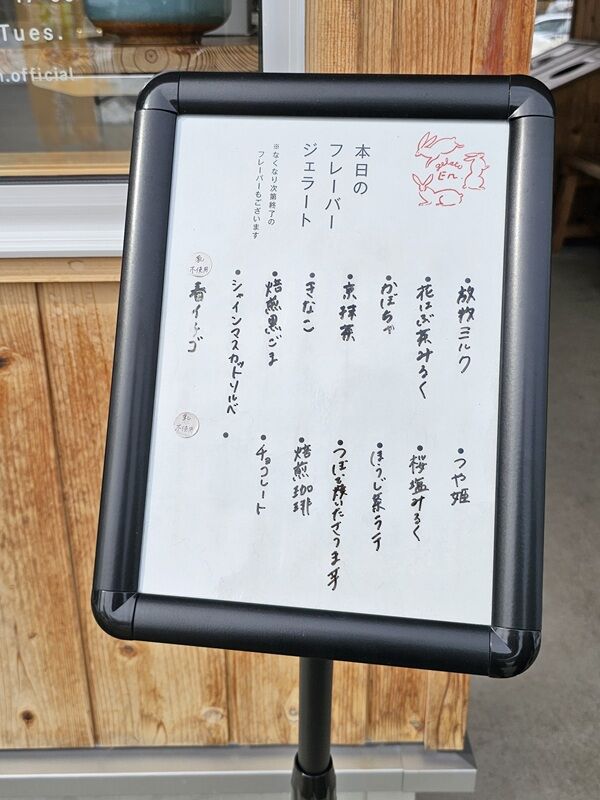 Tues.
n.official
gelato
En.
本日の
フレーバー
ジェラート
※なくなり次第終了の
フレーバーもございます
・放牧ミルク
・花はぶ茶みるく
・かぼちゃ
・京抹茶
・きなこ
・焙煎黒ごま
・シャインマスカットソルベ
乳
不使用
春イチゴ
・つや姫
・桜塩みるく
・ほうじ茶ラテ
・つぼで焼いたさつま芋
・焙煎珈琲
・チョコレート
・
乳
不使用